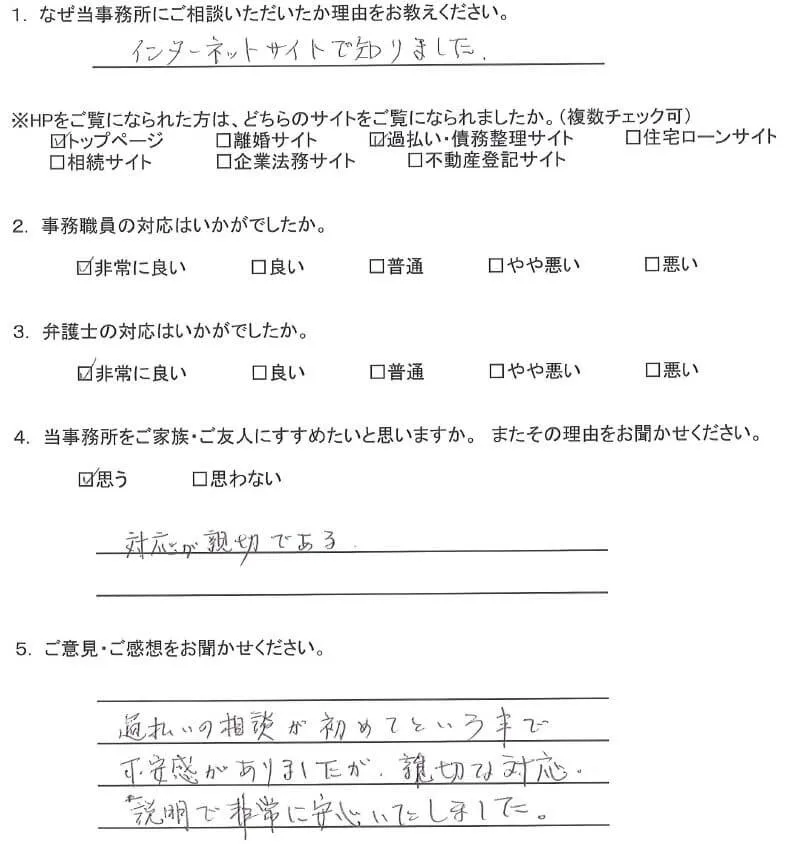 1. なぜ当事務所にご相談いただいたか理由をお教えください。
インターネットサイトで知りました.
※HPをご覧になられた方は、どちらのサイトをご覧になられましたか。(複数チェック可)
☑トップページ □離婚サイト ☑過払い・債務整理サイト □住宅ローンサイト
□相続サイト □企業法務サイト □不動産登記サイト
2. 事務職員の対応はいかがでしたか。
☑非常に良い □良い □普通 □やや悪い □悪い
3. 弁護士の対応はいかがでしたか。
☑非常に良い □良い □普通 □やや悪い □悪い
4. 当事務所をご家族・ご友人にすすめたいと思いますか。 またその理由をお聞かせください。
☑思う □思わない
対応が親切である.
5. ご意見・ご感想をお聞かせください。
過払いの相談が初めてという事で
不安感がありましたが、親切な対応.
説明で非常に安心いたしました。